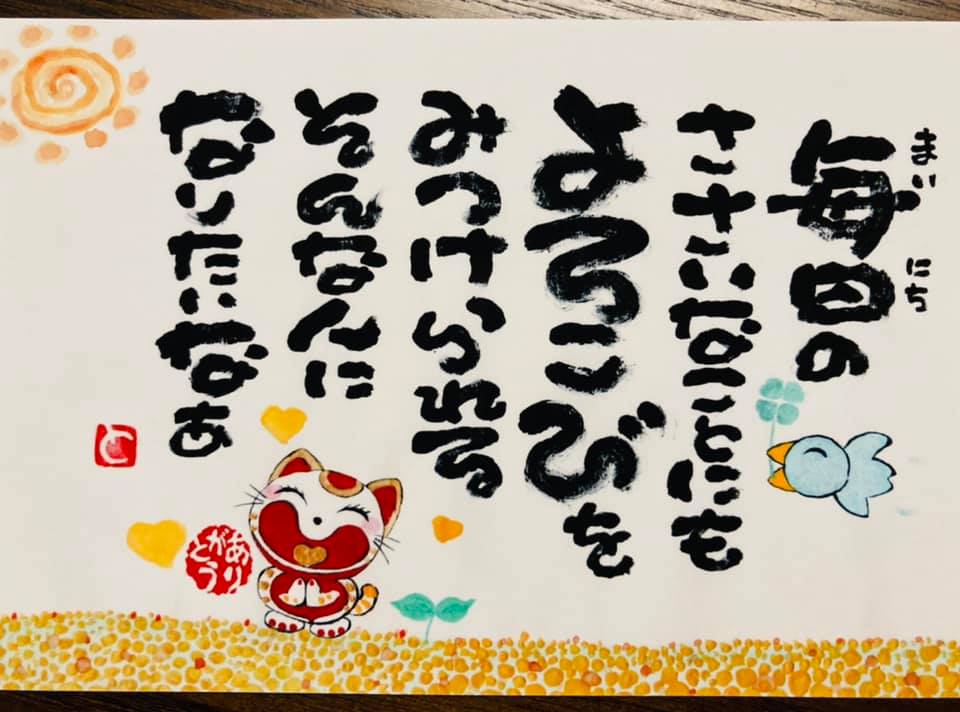 毎日の
まいにち
ささいなことにも
よろこびを
みつけられる
そんなに
なりたいなぁ
ありがとう
と